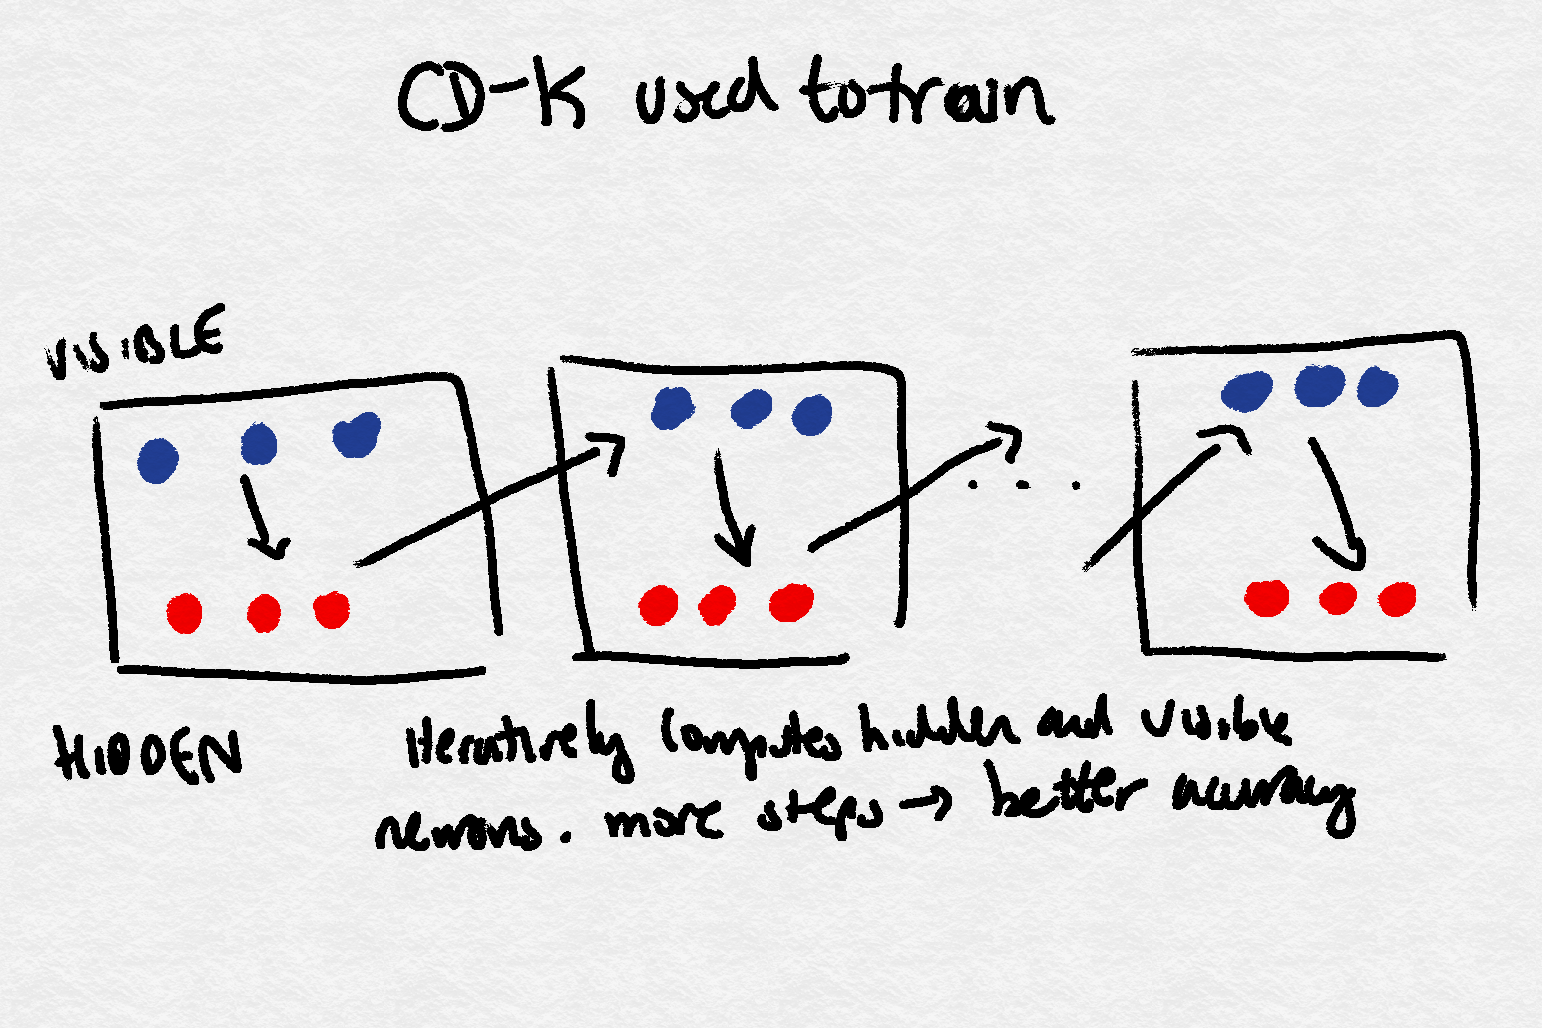 CD-K used to train
VISIBLE
HIDDEN
iteratively computes hidden and visible
neurons. more steps → better accuracy